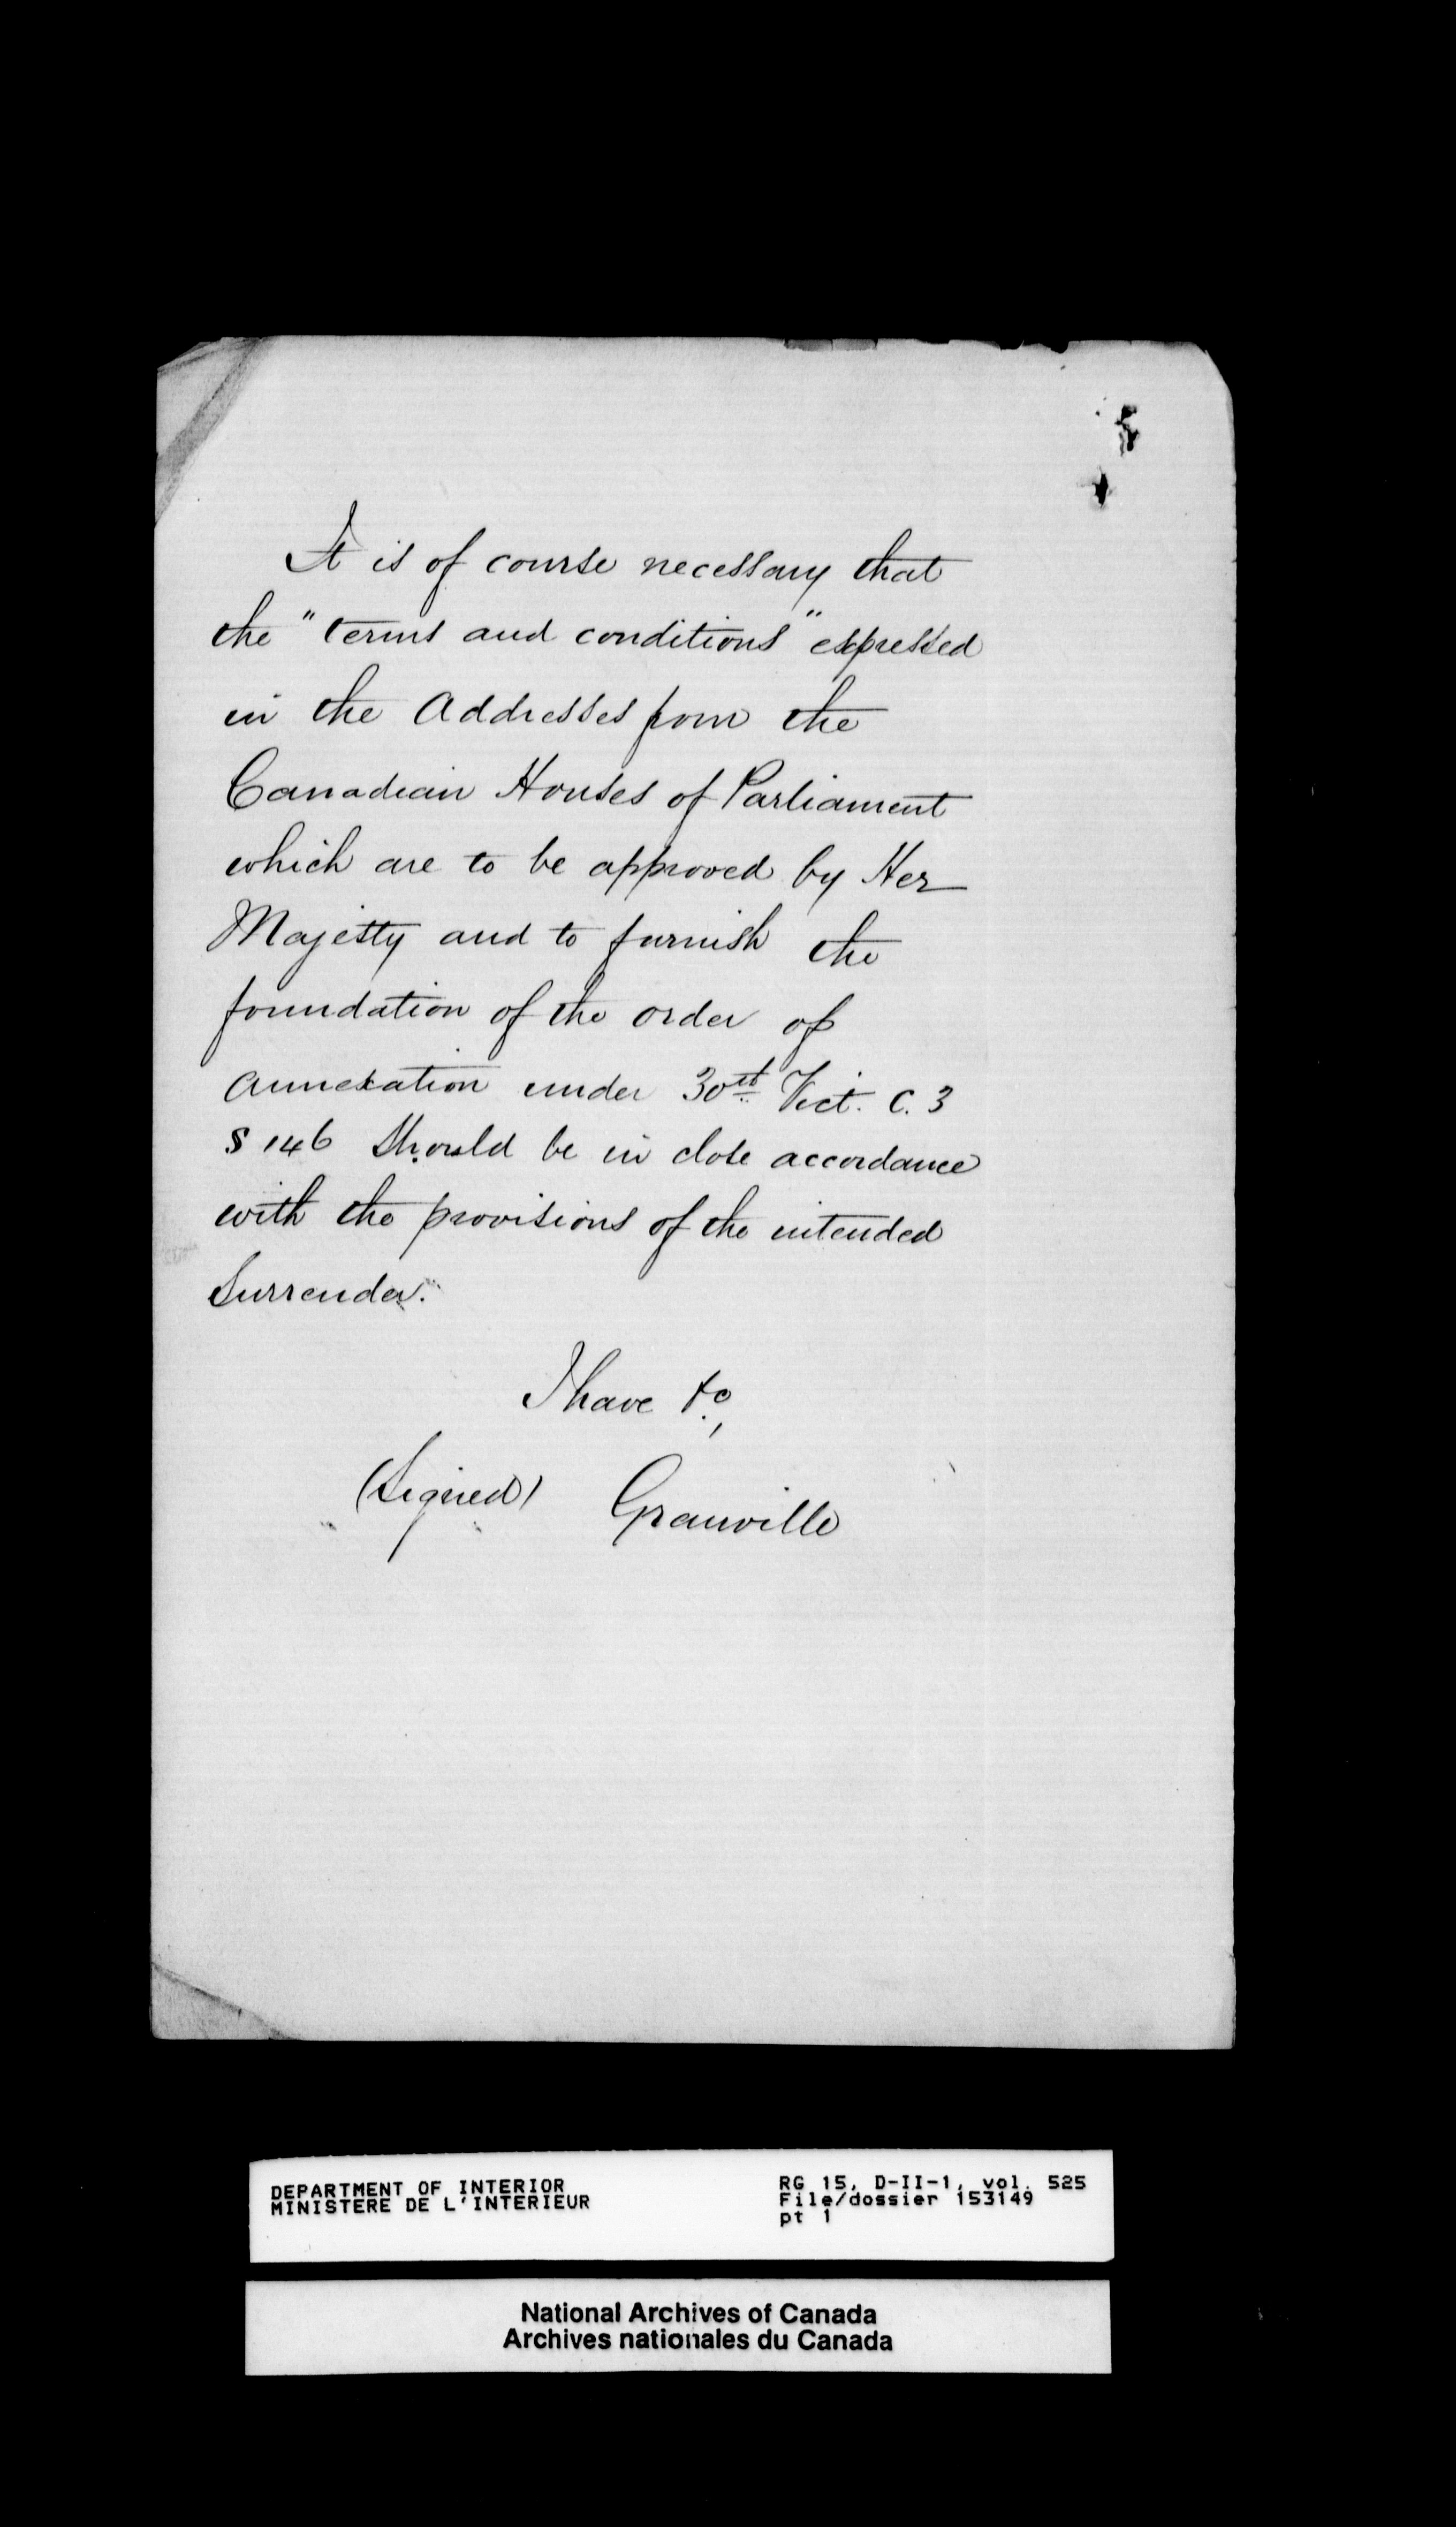 It is of course necessary that
the "terms and conditions" expressed
in the Addresses from the
Canadian Houses of Parliament
which are to be approved by Her
Majesty and to furnish the
foundation of the order of
annexation under 30st Vict. C. 3
S 146 Should be in close accordance
with the provisions of the intended
Surrender.
I have &c,
(Signed) Granville
DEPARTMENT OF INTERIOR
MINISTERE DE L'INTERIEUR
RG 15, D-II-1, vol. 525
File/dossier 153149
pt 1
National Archives of Canada
Archives nationales du Canada